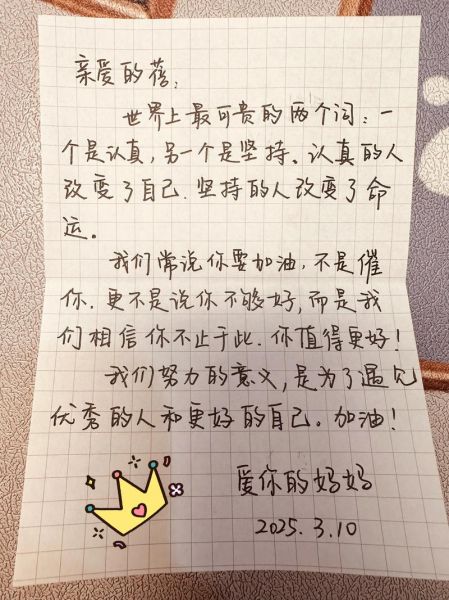 亲爱的蓓:
世界上最可贵的两个词:一
个是认真,另一个是坚持、认真的人
改变了自己.坚持的人改变了命
运。
我们常说你要加油,不是催
你.更不是说你不够好,而是我
们相信你不止于此.你值得更好!
我们努力的意义,是为了遇见
优秀的人和更好的自己。加油!
爱你的妈妈
2025.3.10